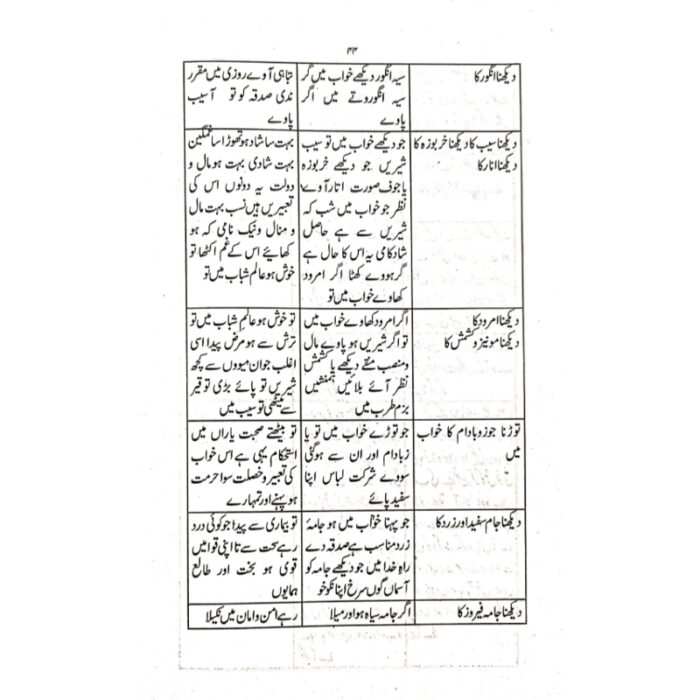 ۴۴
دیکھنا انگور کا
سیہ انگور دیکھے خواب میں گر
سیہ انگور وتے میں اگر
پاوے
تباہی آوے روزی میں مقرر
ندی صدقہ کو تو آسیب
پاوے
دیکھنا سیب کا دیکھنا خربوزہ کا
دیکھنا انار کا
جو دیکھے خواب میں تو سیب
شیریں جو دیکھے خربوزہ
یا جوف صورت انار آوے
نظر جو خواب میں شب کہ
شیریں سے ہے حاصل
شادکامی یہ اس کا حال ہے
گر ہووے کھٹا اگر امرود
کھاوے خواب میں تو
بہت سا شاد ہو تھوڑا سا غمگین
بہت شادی بہت ہو مال و
دولت یہ دونوں اس کی
تعبیریں ہیں نسب بہت مال
و منال و نیک نامی کہ ہو
کھایئے اس کے غم اکٹھا تو
خوش ہو عالم شباب میں تو
دیکھنا امرود کا
دیکھنا مونیز و کشمش کا
اگر امرود کھاوے خواب میں
تو اگر شیریں ہو پاوے مال
و منصب منقے دیکھے یا کشمش
نظر آئے بلائیں ہمنشیں
بزم طرب میں
تو خوش ہو عالمِ شباب میں تو
ترش سے ہو مرض پیدا اسی
اغلب جوان میووں سے کچھ
شیریں تو پائے بڑی توقیر
سے میٹھی تو سیب میں
توڑنا جوز و بادام کا خواب
میں
جو توڑے خواب میں تو یا
زبادام اور ان سے ہوگئی
سودے شرکت لباس اپنا
سفید پائے
تو بیٹھتے صحبت یاراں میں
استحکام یہی ہے اس خواب
کی تعبیر و خصلت سوا حرمت
ہو پہنے اور تمہارے
دیکھنا جام سفید اور زرد کا
جو پہنا خواب میں ہو جامۂ
زرد مناسب ہے صدقہ دے
راہِ خدا میں جو دیکھے جامہ کو
آسماں گوں سرخ اپنا نکو خو
تو بیماری سے پیدا جو کوئی درد
رہے سخت سے تا اپنی قوا میں
قوی ہو بخت اور طالع
ہمایوں
دیکھنا جامہ فیروز کا
اگر جامہ سیاہ ہو اور میلا
رہے امن و امان میں نکیلا